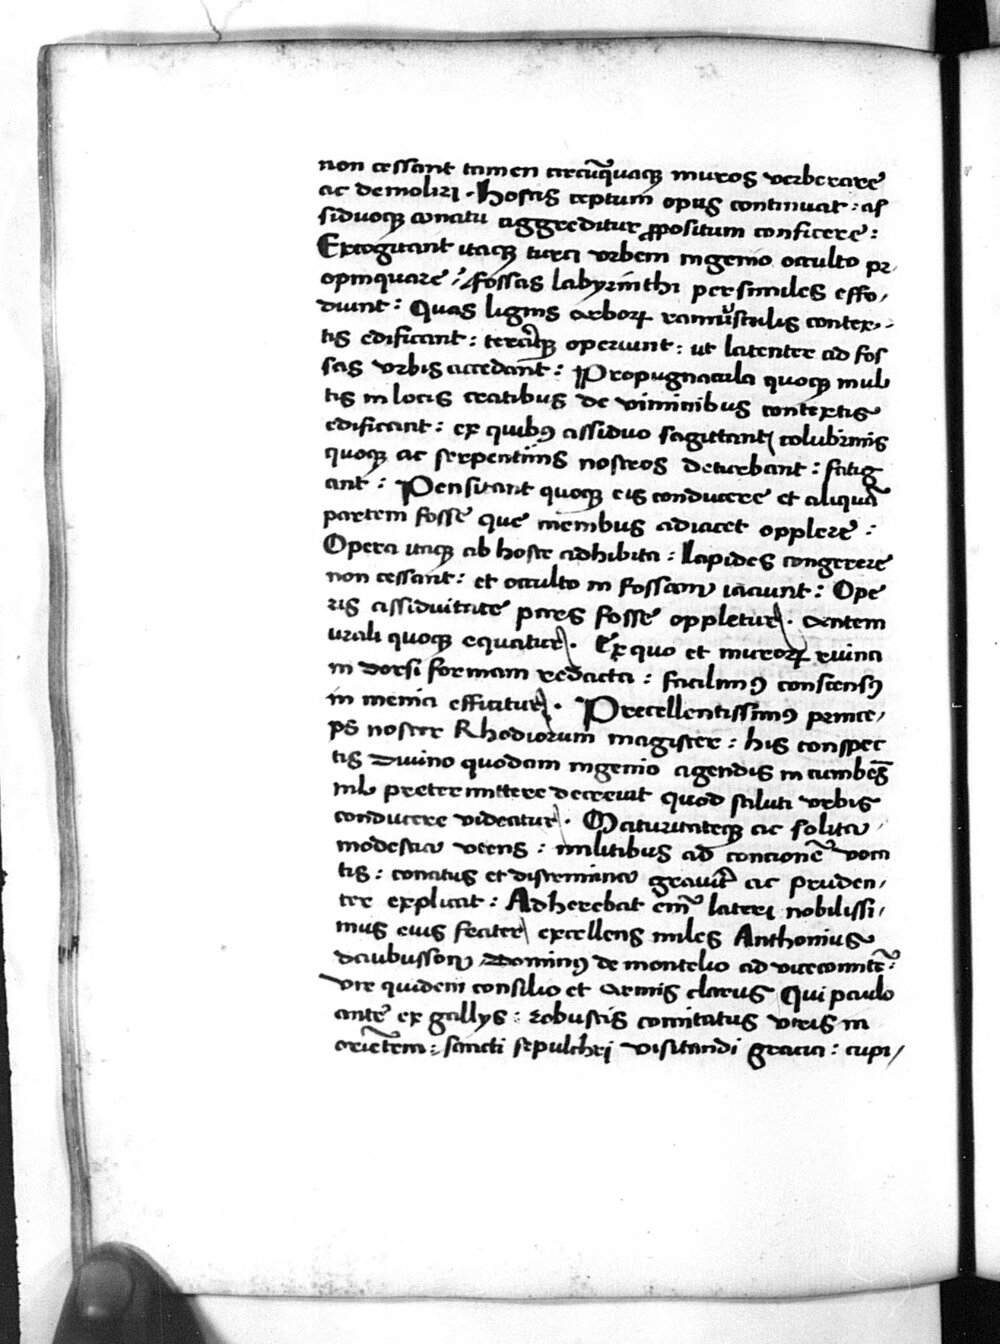 non cessant tamen circũquaqꝫ muros verberare
ac demoliri . Hostis ceptum opus continuat : as
siduoqꝫ conatu aggreditur ꝓpositum conficere :
Excogitant itaqꝫ turci vrbem ingenio occulto pr,
opinquare : fossas labyrinthi persimiles effo,
diunt : Quas lignis arborꝝ ramusculis contex,
tis edificant : terraqꝫ operiunt : ut latenter ad fos
sas vrbis accedant : Propugnacula quoqꝫ mul
tis in locis cratibus de viminibus contextis
edificant : ex quibꝰ assiduo sagittanti colubrinis
quoqꝫ ac serpentinis nostros deturbant : fatig
ant : Pensitant quoqꝫ eis conducere et aliquã
partem fosse que menibus adiacet opplere :
Opera itaqꝫ ab hoste adhibita : Lapides congerere
non cessant : et occulto in fossam iaciunt : Ope
ris assiduitate pars fosse oppletur . antem
urali quoqꝫ equatur . Ex quo et murorꝝ ruina
in dorsi formam redacta : facilimꝰ consensꝰ
in menia efficitur . Precellentissimꝰ prince,
ps noster Rhodiorum magister : his conspec
tis Divino quodam ingenio agendis incumbẽs
nil pretermittere decreuit quod saluti vrbis
conducere videatur . Maturitateqꝫ ac solita
modestia vtens : militibus ad concionẽ voca
tis : conatus et discrimina grauit̃ ac pruden,
ter explicat : Adherebat em̃ lateri nobilissi,
mus eius frater excellens miles Anthonius
daubusson Dominꝰ de montelio ad vicecomitẽ :
vir quidem consilio et armis clarus Qui paulo
ante ex gallys : robustis comitatus viris in
oriẽtem : sancti sepulchri visitandi gracia : cupi,